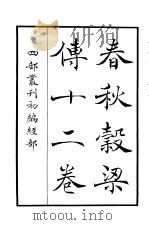 春秋穀梁
傳十二卷
四部叢刊初編經部
mtoou.info